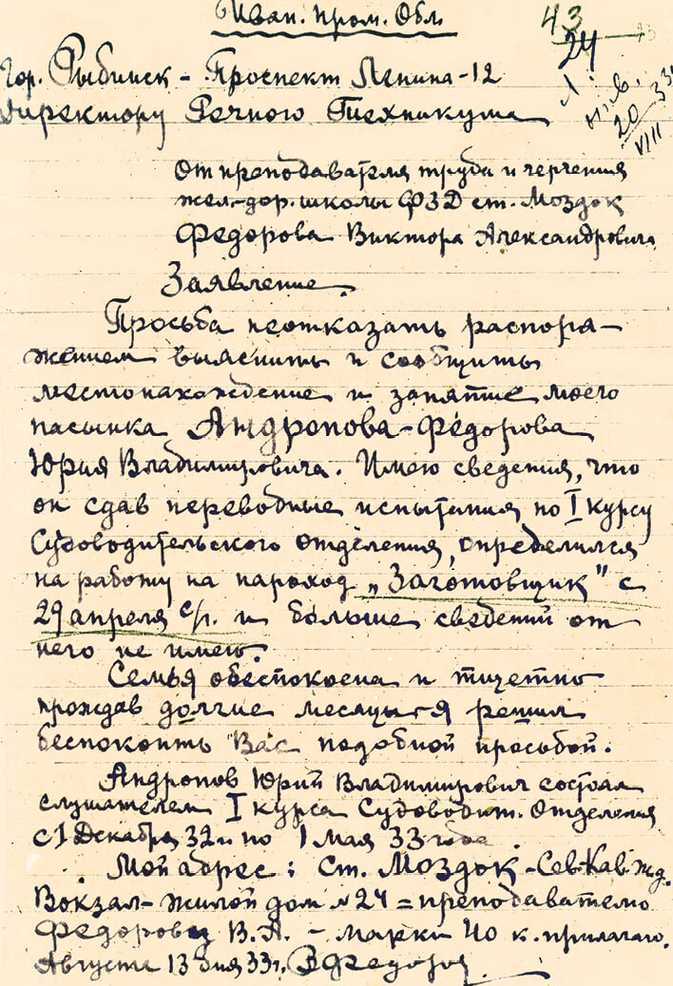 Иван. пром. Обл.
43
24
Гор. Рыбинск - Проспект Ленина-12
Директору Речного Техникума
20/VIII 33
От преподавателя труда и черчения
жел-дор. школы ФЗД ст. Моздок
Федорова Виктора Александровича
Заявление.
Просьба неотказать распоря-
жением выяснить и сообщить
местонахождение и занятие моего
пасынка Андропова-Федорова
Юрия Владимировича. Имею сведения, что
он сдав переводные испытания по I курсу
Судоводительского отделения, определился
на работу на пароход „Заготовщик" с
29 апреля с/г. и больше сведений от
него не имею.
Семья обеспокоена и тщетно
прождав долгие месяцы я решил
беспокоить Вас подобной просьбой.
Андропов Юрий Владимирович состоял
слушателем I курса Судоводит. Отделения
с 1 Декабря 32 г. по 1 мая 33 года.
Мой адрес: Ст. Моздок-Сев Кав. жд.
Вокзал-жилой дом № 24 = преподавателю
Федорову В. А. - марки 40 к. прилагаю.
Августа 13 дня 33 г. В Федоров